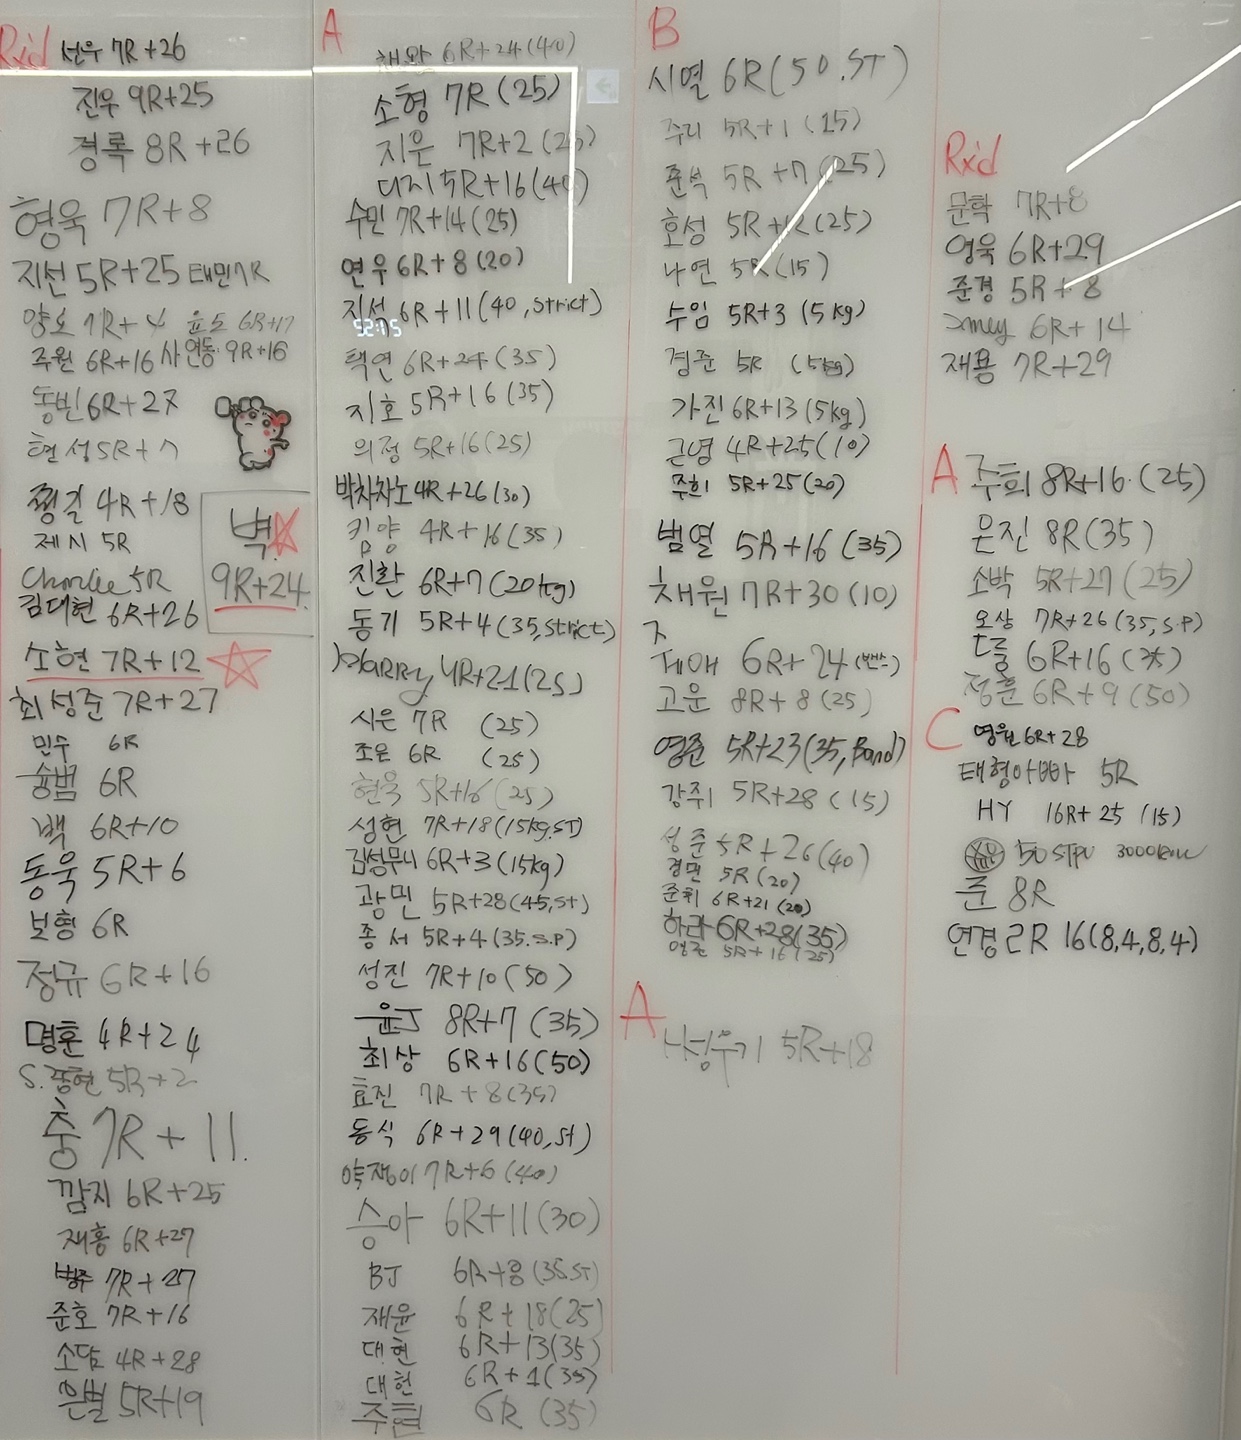 Rx'd 선우 7R+26
진우 9R+25
경록 8R+26
형욱 7R+8
지선 5R+25 태민 7R
양오 7R+4 윤도 6R+17
주원 6R+16 사연동 9R+16
동빈 6R+27
현성 5R+7
찡길 4R+18
제시 5R
벽
9R+24
Charlie 5R
김대현 6R+26
소현 7R+12
최성준 7R+27
민수 6R
슝범 6R
백 6R+10
동욱 5R+6
보형 6R
정규 6R+16
명훈 4R+24
S.장현 5R+2
충 7R+11
깜지 6R+25
재홍 6R+27
병주 7R+27
준호 7R+16
소담 4R+28
은별 5R+19
A
채완 6R+24(40)
소형 7R(25)
지은 7R+2(25)
디지 5R+16(40)
수민 7R+14(25)
연우 6R+8(20)
지섭 6R+11(40, strict)
택연 6R+24(35)
지호 5R+16(35)
의정 5R+16(25)
박차차노 4R+26(30)
킴양 4R+16(35)
진환 6R+7(20kg)
동기 5R+4(35, strict)
Harry 4R+21(25)
시은 7R (25)
조은 6R (25)
현욱 5R+16(25)
성현 7R+18(15kg,ST)
김성무니 6R+3(15kg)
광민 5R+28(45,st)
종서 5R+4(35.S.P)
성진 7R+10(50)
윤J 8R+7 (35)
최상 6R+16(50)
효진 7R+8(35)
동식 6R+29(40,st)
약쟁이 7R+6(40)
승아 6R+11(30)
BJ 6R+8(35.ST)
재윤 6R+18(25)
대현 6R+13(35)
대헌 6R+1(35)
주현 6R (35)
B
시열 6R(50.ST)
주리 5R+1 (15)
준석 5R+7 (25)
호성 5R+12(25)
나연 5R(15)
수임 5R+3 (5kg)
경준 5R (5kg)
가진 6R+13(5kg)
근영 4R+25(10)
주희 5R+25(20)
범열 5R+16 (35)
채원 7R+30(10)
제애 6R+24(밴드)
고운 8R+8(25)
영준 5R+23(35, Band)
강쥐 5R+28 (15)
성준 5R+26(40)
경민 5R(20)
준휘 6R+21(20)
하라 6R+28(35)
5R+16(25)
A
5R+18
Rx'd
문학 7R+8
영욱 6R+29
준경 5R+8
6R+14
재용 7R+29
A 주희 8R+16.(25)
은진 8R(35)
소박 5R+27(25)
오상 7R+26(35,S.P)
드룸 6R+16
정훈 6R+9(50)
C 영원 6R+28
태형아빠 5R
HY 16R+25 (15)
50 STPU 3000Row
준 8R
연경 2R 16(8,4,8,4)